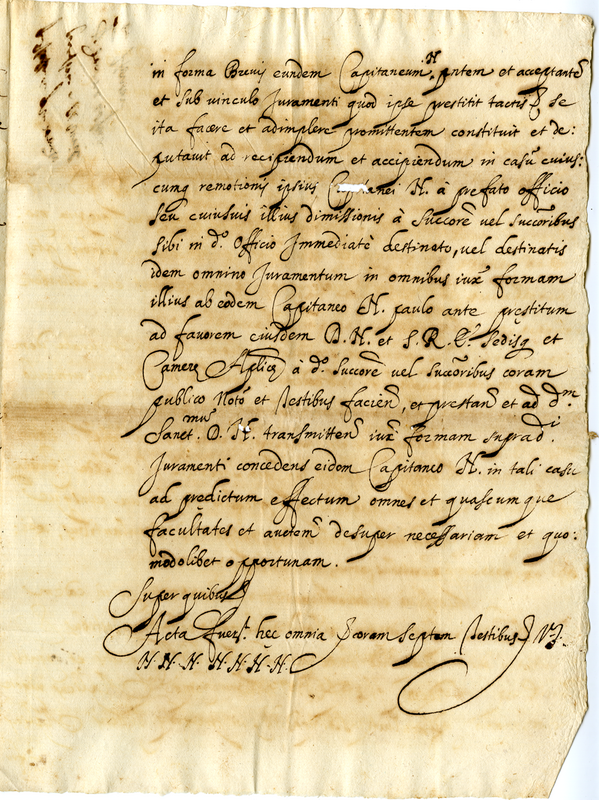 in forma Brevis eundem Capitaneum N. pntem et acceptantē
et sub vinculo Juramenti quod ipse prestitit tactis se
ita facere et adimplere promittentem constituit et de:
putavit ad recipiendum et accipiendum in casū cuius:
cunq remotionis ipsius Capitanei N. à prefato officio
seu cuiusvis illius dimissionis à Succorē vel Succoribus
sibi in d.º Officio Immediatè destineto, vel destinatis
idem omnino Juramentum in omnibus iux̄ formam
illius ab eodem Capitaneo N. paulo ante prestitum
ad favorem eiusdem D. N. et S. R. E. Sedisq et
Camerę Aplicę à d.º Succorē vel Succoribus coram
publico Notō et Testibus facien̄, et prestan̄ et ad d.m
Sanct.mum D. N. transmitten̄ iux̄ formam suprad.i
Juramenti concedens eidem Capitaneo N. in tali casu
ad predictum effectum omnes et quascumque
facultates et auctem̄ desuper necessariam et quo:
modolibet opportunam.
Super quibus
Acta fuer.t hec omnia coram septem Testibus
N. N. N. N. N. N. N.